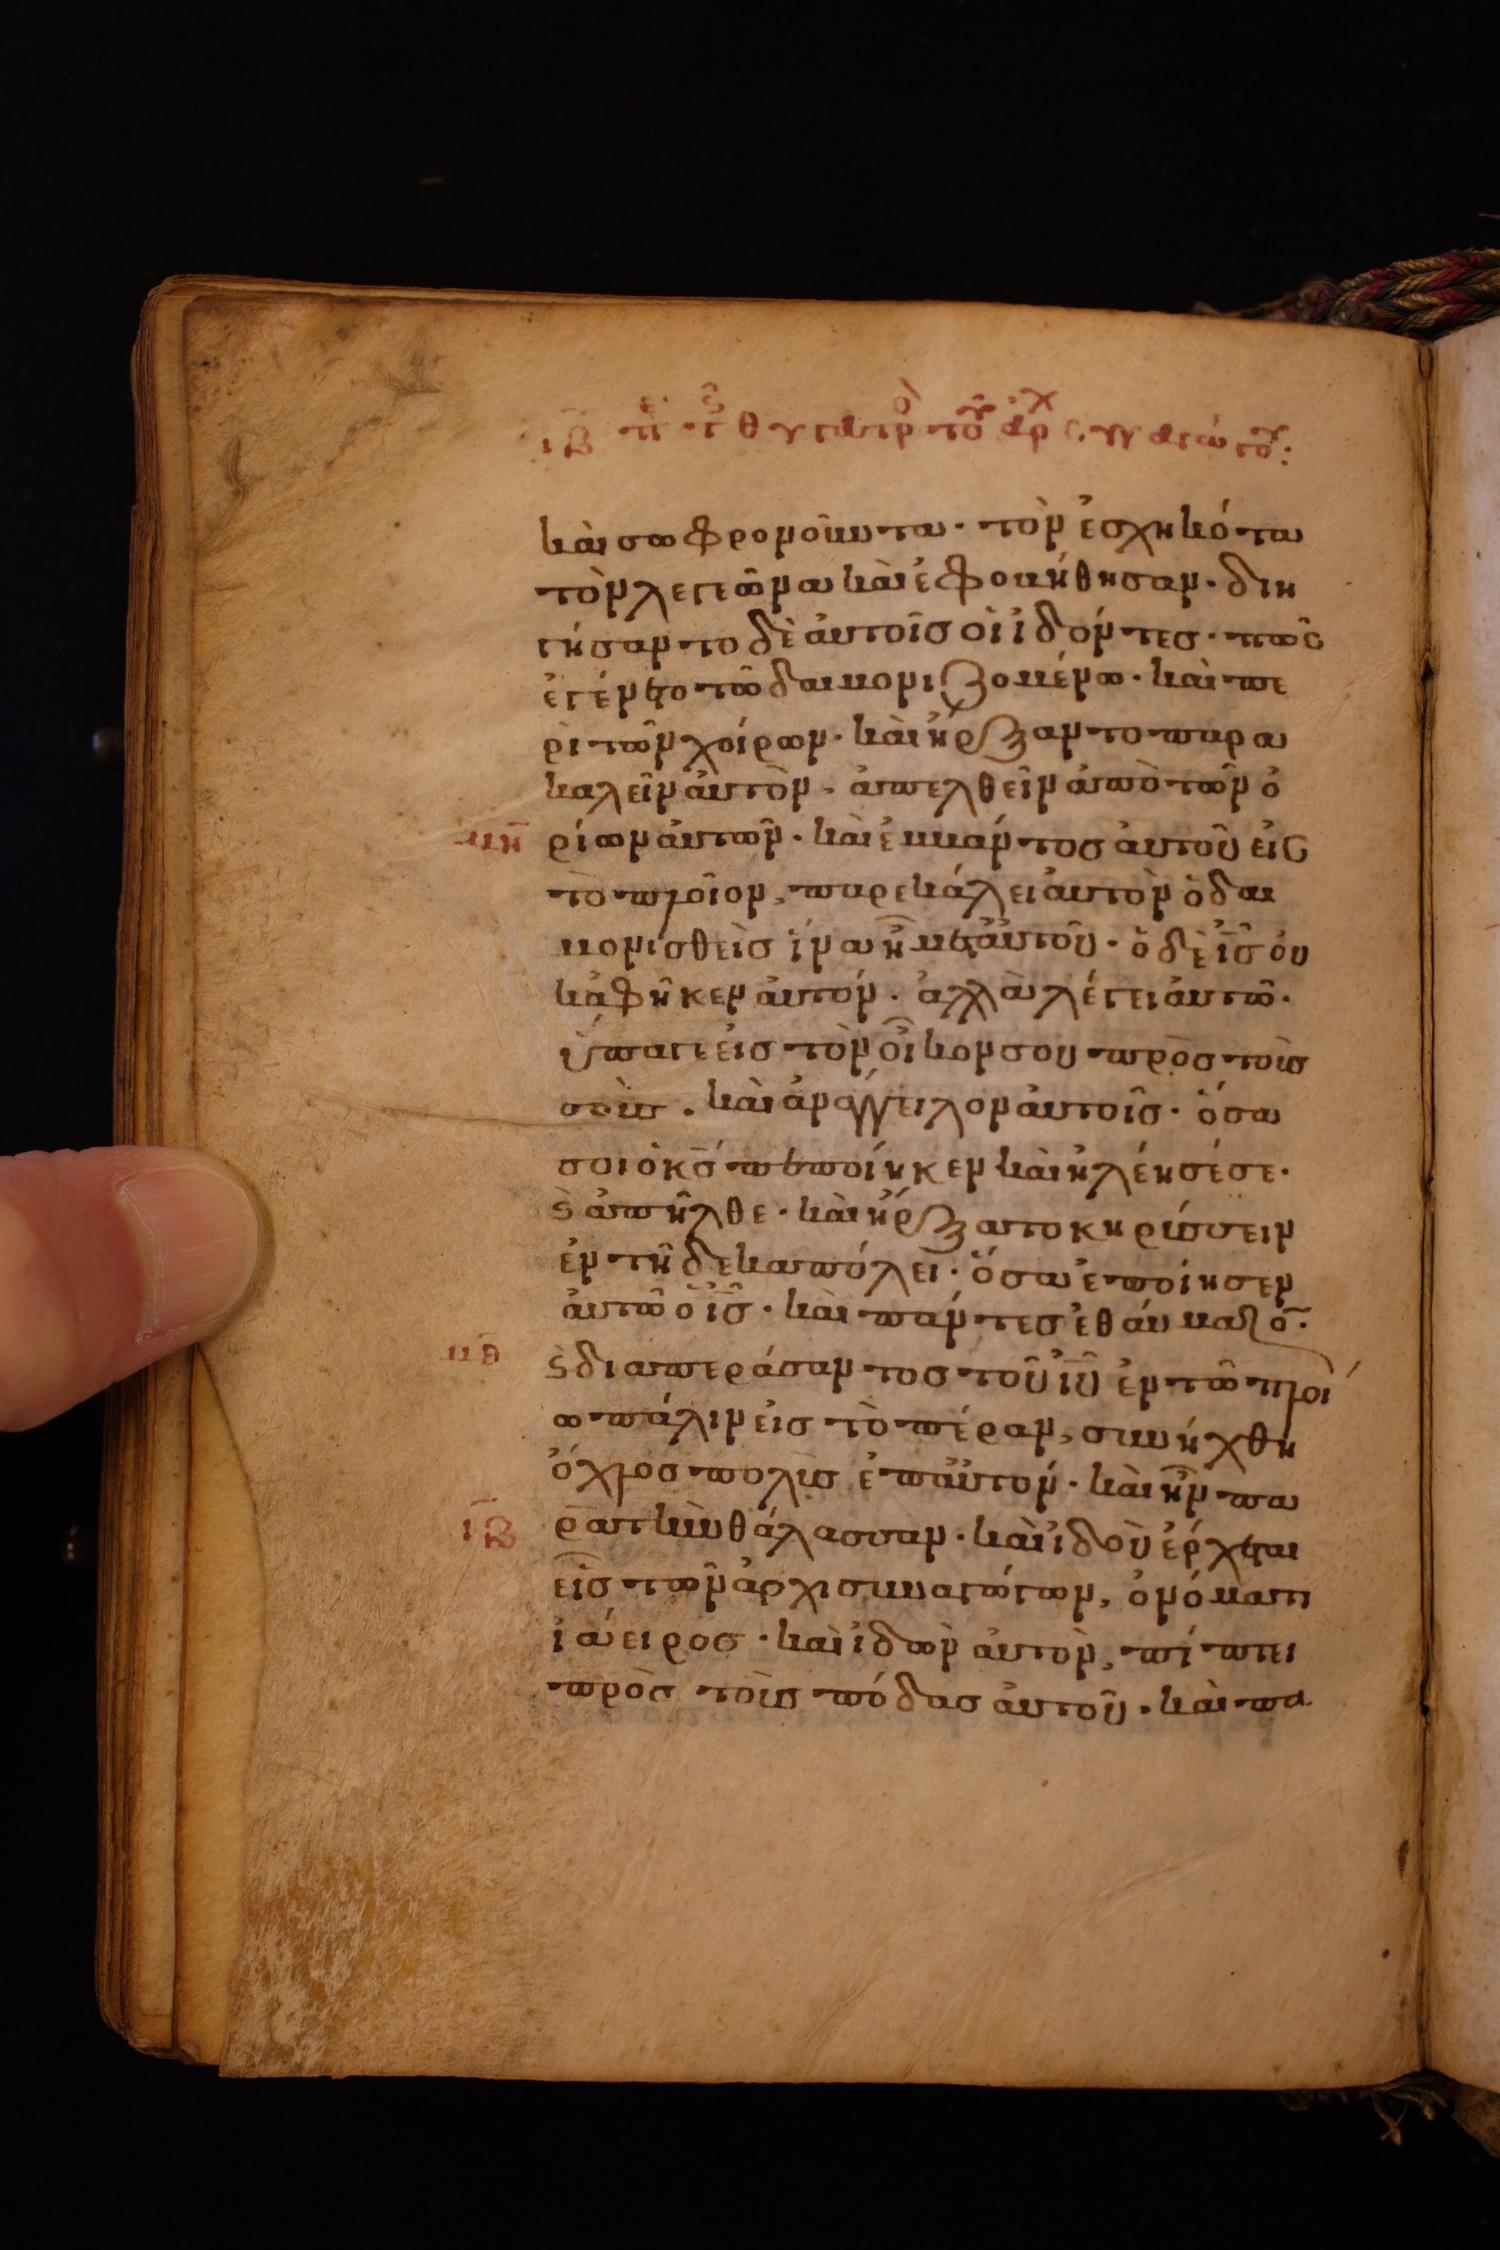 ιβ̅ περὶ τῆς θυγατρὸς τοῦ ἀρχισυναγώγου:
καὶ σωφρονοῦντα· τὸν ἐσχηκότα
τὸν λεγεῶνα καὶ ἐφοβήθησαν· διη
γήσαντο δὲ αὐτοῖσ οἱ ἰδόντεσ· πῶς
ἐγένετο τῶ δαιμονιζομένω· καὶ πε
ρὶ τῶν χοίρων· καὶ ἤρξαντο παρα
καλεῖν ἀυτὸν, ἀπελθεῖν ἀπὸ τῶν ὁ
μη̅ ρίων ἀυτῶν· καὶ ἐμβάντοσ ἀυτοῦ εἰς
τὸ πλοῖον, παρεκάλει ἀυτὸν ὁ δαι
μονισθεὶσ ἵνα ἦ μετ ἀυτοῦ· ὁ δὲ ι̅σ̅ οὐ
κ ἀφῆκεν ἀυτόν· ἀλλὰ λέγει ἀυτῶ·
ὕπαγε εἰσ τὸν οἶκον σου πρὸσ τοὺσ
σοὺσ· καὶ ἀνάγγειλον ἀυτοῖσ· ὅσα
σοι ὁ κ̅σ̅ πεποίηκεν καὶ ἠλέησέ σε·
ϛ ἀπῆλθε· καὶ ἤρξατο κηρύσσειν
ἐν τῆ δεκαπόλει· ὅσα ἐποίησεν
ἀυτῶ ὁ ι̅σ̅· καὶ πάντεσ ἐθάυμαζο̅·
μθ̅ ϛ διαπεράσαντοσ τοῦ ι̅υ̅ ἐν τῶ πλοί
ω πάλιν εἰσ τὸ πέραν, συνήχθη
ὄχλοσ πολὺσ ἐπ ἀυτόν· καὶ ἦν πα
ιβ̅ ρὰ τὴν θάλασσαν· καὶ ἰδοὺ ἔρχεται
εἷσ τῶν ἀρχισυναγώγων, ὀνόματι
ἰάειροσ· καὶ ἰδὼν ἀυτὸν, πίπτει
πρὸσ τοὺσ πόδασ ἀυτοῦ· καὶ πα